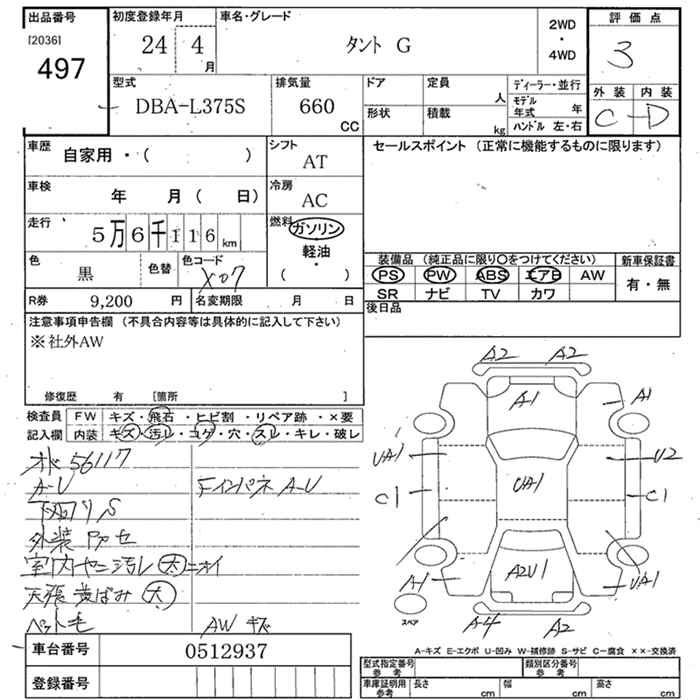 出品番号
[2036]
497
初度登録年月
24 4
月
車名・グレード
タント G
2WD
・
4WD
評価点
3
外装 内装
C - D
型式
DBA-L375S
排気量
660
CC
ドア
形状
定員
人
積載
kg
ディーラー・並行
モデル年式 年
ハンドル 左・右
車歴
自家用・( )
シフト
AT
セールスポイント (正常に機能するものに限ります)
車検
年 月 ( 日)
冷房
AC
走行
5万6千116km
燃料
ガソリン
・
軽油
( )
色
黒
色替
色コード
X07
装備品 (純正品に限り〇をつけてください)
PS PW ABS エアB AW
SR ナビ TV カワ
新車保証書
有・無
R券 9,200 円
名変期限 月 日
後日品
注意事項申告欄 (不具合内容等は具体的に記入して下さい)
※社外AW
修復歴 有 [箇所 ]
検査員
記入欄
FW キズ・飛石・ヒビ割・リペア跡・×要
内装 キズ・汚レ・コゲ・穴・スレ・キレ・破レ
56117
A-U
下回りS
外装
室内ヤニ汚レ大ニオイ
天張黄ばみ大
ペット毛
インパネ A-U
AW キズ
A2 A2
A1
A1
UA1
U2
UA1
C1
C1
A1
A2U1
UA1
A-4
A2
スペア
A-キズ E-エクボ U-凹み W-補修跡 S-サビ C-腐食 ××-交換済
車台番号
0512937
登録番号
型式指定番号
参考
類別区分番号
参考
車庫証明用
参考
長さ cm
幅 cm
高さ cm